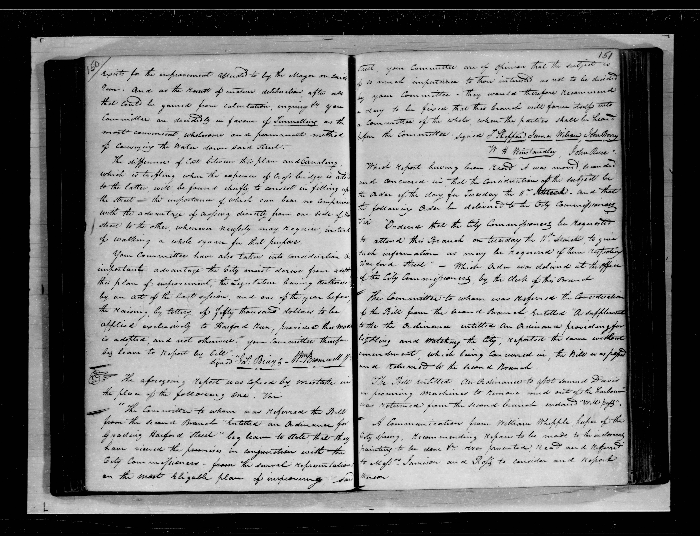 150
expects for the improvement alluded to by the Mayor in said
Com. And as the result of mature deliberation after all
that could be gained from calculation, enquiry &c your
Committee are decidedly in favour of Tunnelling as the
most convenient, wholesome and permanent method
of conveying the Water down said Street.
The difference of Cost between this plan and
which is trifling when the expence of Cross bridges is added
to the latter will be found chiefly to consist in filling up
the street — the importance of which can bear no comparison
with the advantage of crossing directly from one side of the
street to the other, whenever necessity may require instead
of walking a whole square for that purpose
Your Committee have also taken into consideration the
important advantage the City must derive from
this plan of improvement, the Legislature having authorised
by an act of the last session, and one of the year before,
the raising, by lottery of fifty thousand dollars to be
applied exclusively to Harford Run, provided this mode
is adopted, and not otherwise. Your Committee therefore
beg leave to Report by bill
Signed
The aforegoing Report was copied by mistake in
the place of the following one. Viz
"The Committee to whom was referred the Bill
from the second Branch entitled an Ordinance for
Grading Harford Street" beg leave to state that they
have viewed the premises in conjunction with the
City Commissioners — from the several representations
on the most eligible plan of improving said
151
Street your Committee are of opinion that the subject is
of so much importance to those interested as not to be decided
by your Committee. They would therefore recommend
a day to be fixed that this branch will form itself into
a Committee of the whole when the parties shall be heard
upon the Committee. Signed
Which Report having been read it was moved seconded
and concurred in that the consideration of the subject be
the Order of the day for Tuesday the 8th March. and that
the following Order be delivered to the City Commissioners
Viz
Ordered that the City Commissioners be requested
to attend this Branch on Tuesday the March, to give
such information as may be required of them respecting
Harford Street" — Which Order was delivered at the Office
of the City Commissioners by the Clerk of this Branch
The Committee to whom was referred the Consideration
of the Bill from the second Branch entitled "A supplement
to the Ordinance entitled An Ordinance providing for
lighting and watching the City, reported the same without
amendment, which being concurred in, the Bill was passed
and returned to the second Branch
The Bill entitled An Ordinance to assist Samuel Davis
in procuring Machines to remove mud out of the harbour
was returned from the second branch endorsed "Will pass".
A communication from William Whipple keeper of the
City Spring, Recommending repairs to be made to the enclosure,
painting to be done &c was presented read and referred
to Messrs. Jamison and Ross to consider and Report
thereon